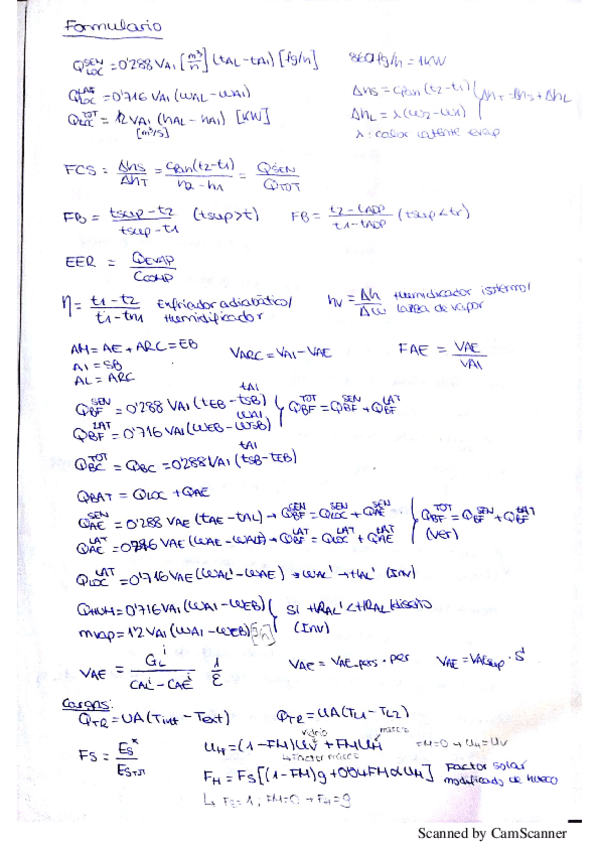 Formulario
Q_LOC^SEN = 0'288 VAI [m³/h] (tAL-tAI) [fg/h]    860 fg/h = 1KW
Q_LOC^LAT = 0'716 VAI (WAL-WAI)    Δhs = cpan (t2-t1) } ΔhT = Δhs + ΔhL
Q_LOC^TOT = 1'2 VAI (hAL-hAI) [KW]    ΔhL = λ (w2-w1)
[m³/s]    λ: calor latente evap
FCS = Δhs/ΔhT = cpan(t2-t1)/h2-h1 = QSEN/QTOT
FB = tsup-t2/tsup-t1 (tsup>t)    FB = t2-tADP/t1-tADP (tsup<tr)
EER = QEVAP/CCOMP
η = t1-t2/t1-th1 Enfriador adiabático/ Humidificador    hv = Δh/Δw Humidificador isotermo/ lanza de vapor
AM = AE + ARC = EB    VARC = VAI - VAE    FAE = VAE/VAI
AI = SB
AL = ARC
tAI
Q_BF^SEN = 0'288 VAI (tEB-tSB) } Q_BF^TOT = Q_BF^SEN + Q_BF^LAT
WAI
Q_BF^LAT = 0'716 VAI (WEB-WSB)
tAI
Q_BC^TOT = QBC = 0'288 VAI (tSB-tEB)
QBAT = QLOC + QAE
Q_AE^SEN = 0'288 VAE (tAE-tAL) → Q_BF^SEN = Q_LOC^SEN + Q_AE^SEN } Q_BF^TOT = Q_BF^SEN + Q_BF^LAT
Q_AE^LAT = 0'716 VAE (WAE-WAL) → Q_BF^LAT = Q_LOC^LAT + Q_AE^LAT (Ver)
Q_LOC^LAT = 0'716 VAE (WAL'-WAE) → WAL' → HAL' (Inv)
QHUM = 0'716 VAI (WAI-WEB) } Si HRAL' < HRAL
mvap = 1'2 VAI (WAI-WEB) (Inv)
VAE = G_L^i/C_AL^i - C_AE^i 1/ε    VAE = VAE-pers · per    VAE = VAEsup · S
Cargas:
QTR = UA (Tint - Text)    QTR = UA (TL1 - TL2)
vidrio    marco
FS = ES*/ES+JI    UH = (1-FM)Uv + FMUM    FM=0 → UH=Uv
↳ Factor marco
FH = FS[(1-FM)g + 0'04 FM α UM] Factor solar modificado de hueco
↳ FS=1; FM=0 → FH=g
Scanned by CamScanner